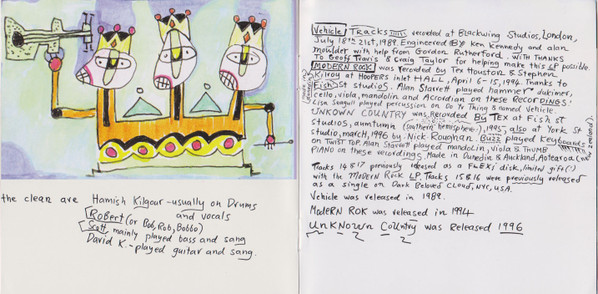 the clean are Hamish Kilgour - usually on Drums
and vocals
RoBert (or Bob, Rob, Bobbo)
Scott, mainly played bass and sang
David K. - played guitar and sang.
Vehicle Tracks recorded at Blackwing Studios, London,
July 18th 21st, 1989. Engineered By Ken Kennedy and alan
moulder with help from Gordon Rutherford. WITH THANKS
To Geoff Travis & Craig Taylor for helping make this LP possible
MODERN ROCK was recorded by Tex Houston & Stephen
Kilroy at HOOPERS inlet HALL, April 6-15, 1994. Thanks to
Fish St studios. Alan Starrett played hammer dulcimer,
cello, viola, mandolin and Accordian on these RecORDINGS!
Lisa played percussion on Do Yr Thing & named Vehicle.
UNKOWN COUNTRY was Recorded By TEX at Fish St
studios, aumtumn (southern hemisphere), 1995, also at York St
studio, march, 1996 by Nick Roughan. Buzz played keyboards
on TWIST TOP. Alan Starrett played mandolin, viola & THUMB
PIANO on these recordings. Made in Dunedin & Auckland, Aotearoa
Tracks 14 & 17 previously released as a FLEXI disk, limited gift(!)
with the Modern Rock LP. Tracks 15 & 16 were previously released
as a single on Dark Beloved Cloud, NYC, USA.
Vehicle was released in 1989.
Modern ROK was released in 1994
UnKNOwn COuntry was Released 1996